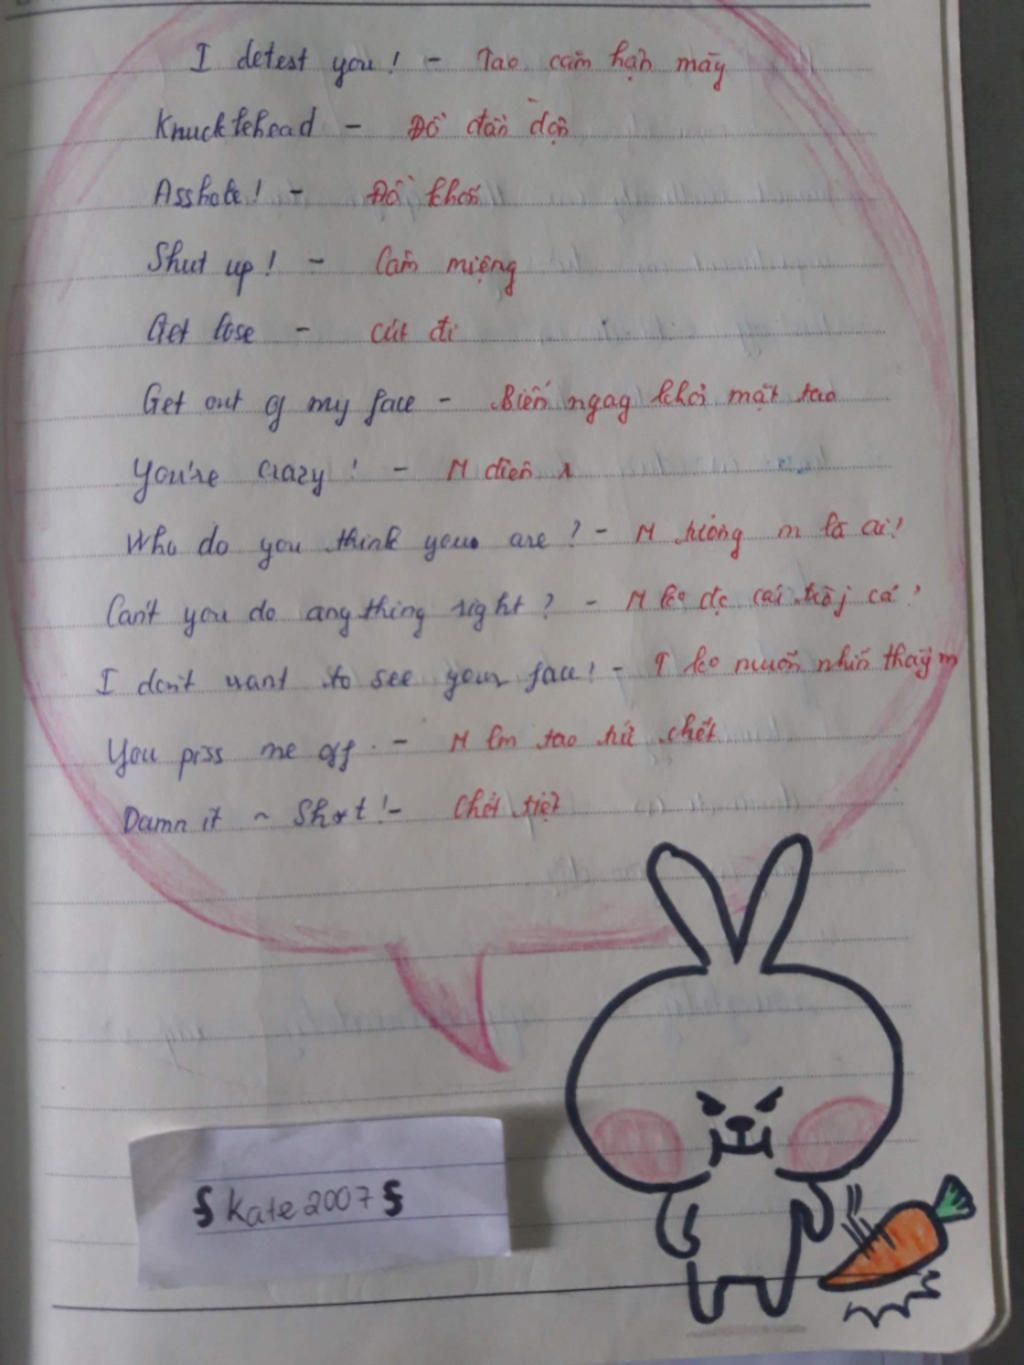 I detest you! - Tao căm hận mày
Knucklehead - Đồ đần độn
Asshole! - Đồ khốn
Shut up! - Câm miệng
Get lose - cút đi
Get out of my face - Biến ngay khỏi mặt tao
You're crazy! - M điên
Who do you think you are? - M tưởng m là ai?
Can't you do anything right? - M ko đc cái trò j cả?
I don't want to see your face! - T ko muốn nhìn thấy m
You piss me off. - M lm tao tức chết
Damn it ~ Sh*t! - Chết tiệt
§ Kate 2007 §